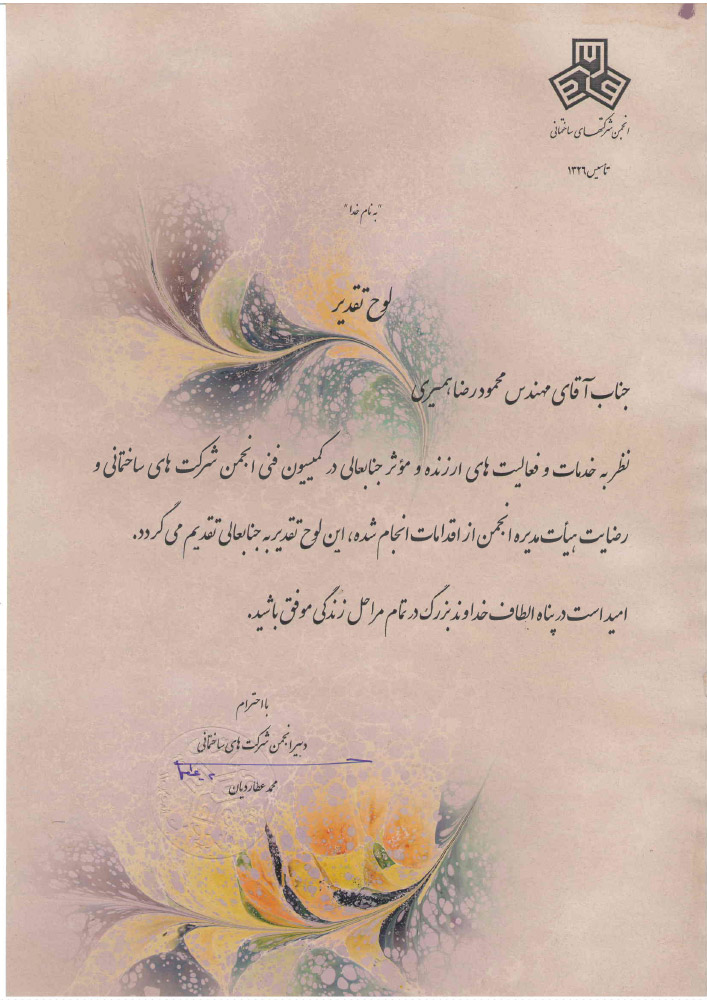 انجمن شرکتهای ساختمانی
تأسیس ۱۳۲۶
"به نام خدا"
لوح تقدیر
جناب آقای مهندس محمودرضا همیری
نظر به خدمات و فعالیت های ارزنده و مؤثر جنابعالی در کمیسون فنی انجمن شرکت های ساختمانی و
رضایت هیأت مدیره انجمن از اقدامات انجام شده، این لوح تقدیر به جنابعالی تقدیم می گردد.
امید است در پناه الطاف خداوند بزرگ در تمام مراحل زندگی موفق باشید.
با احترام
دبیر انجمن شرکت های ساختمانی
محمد عطاردیان